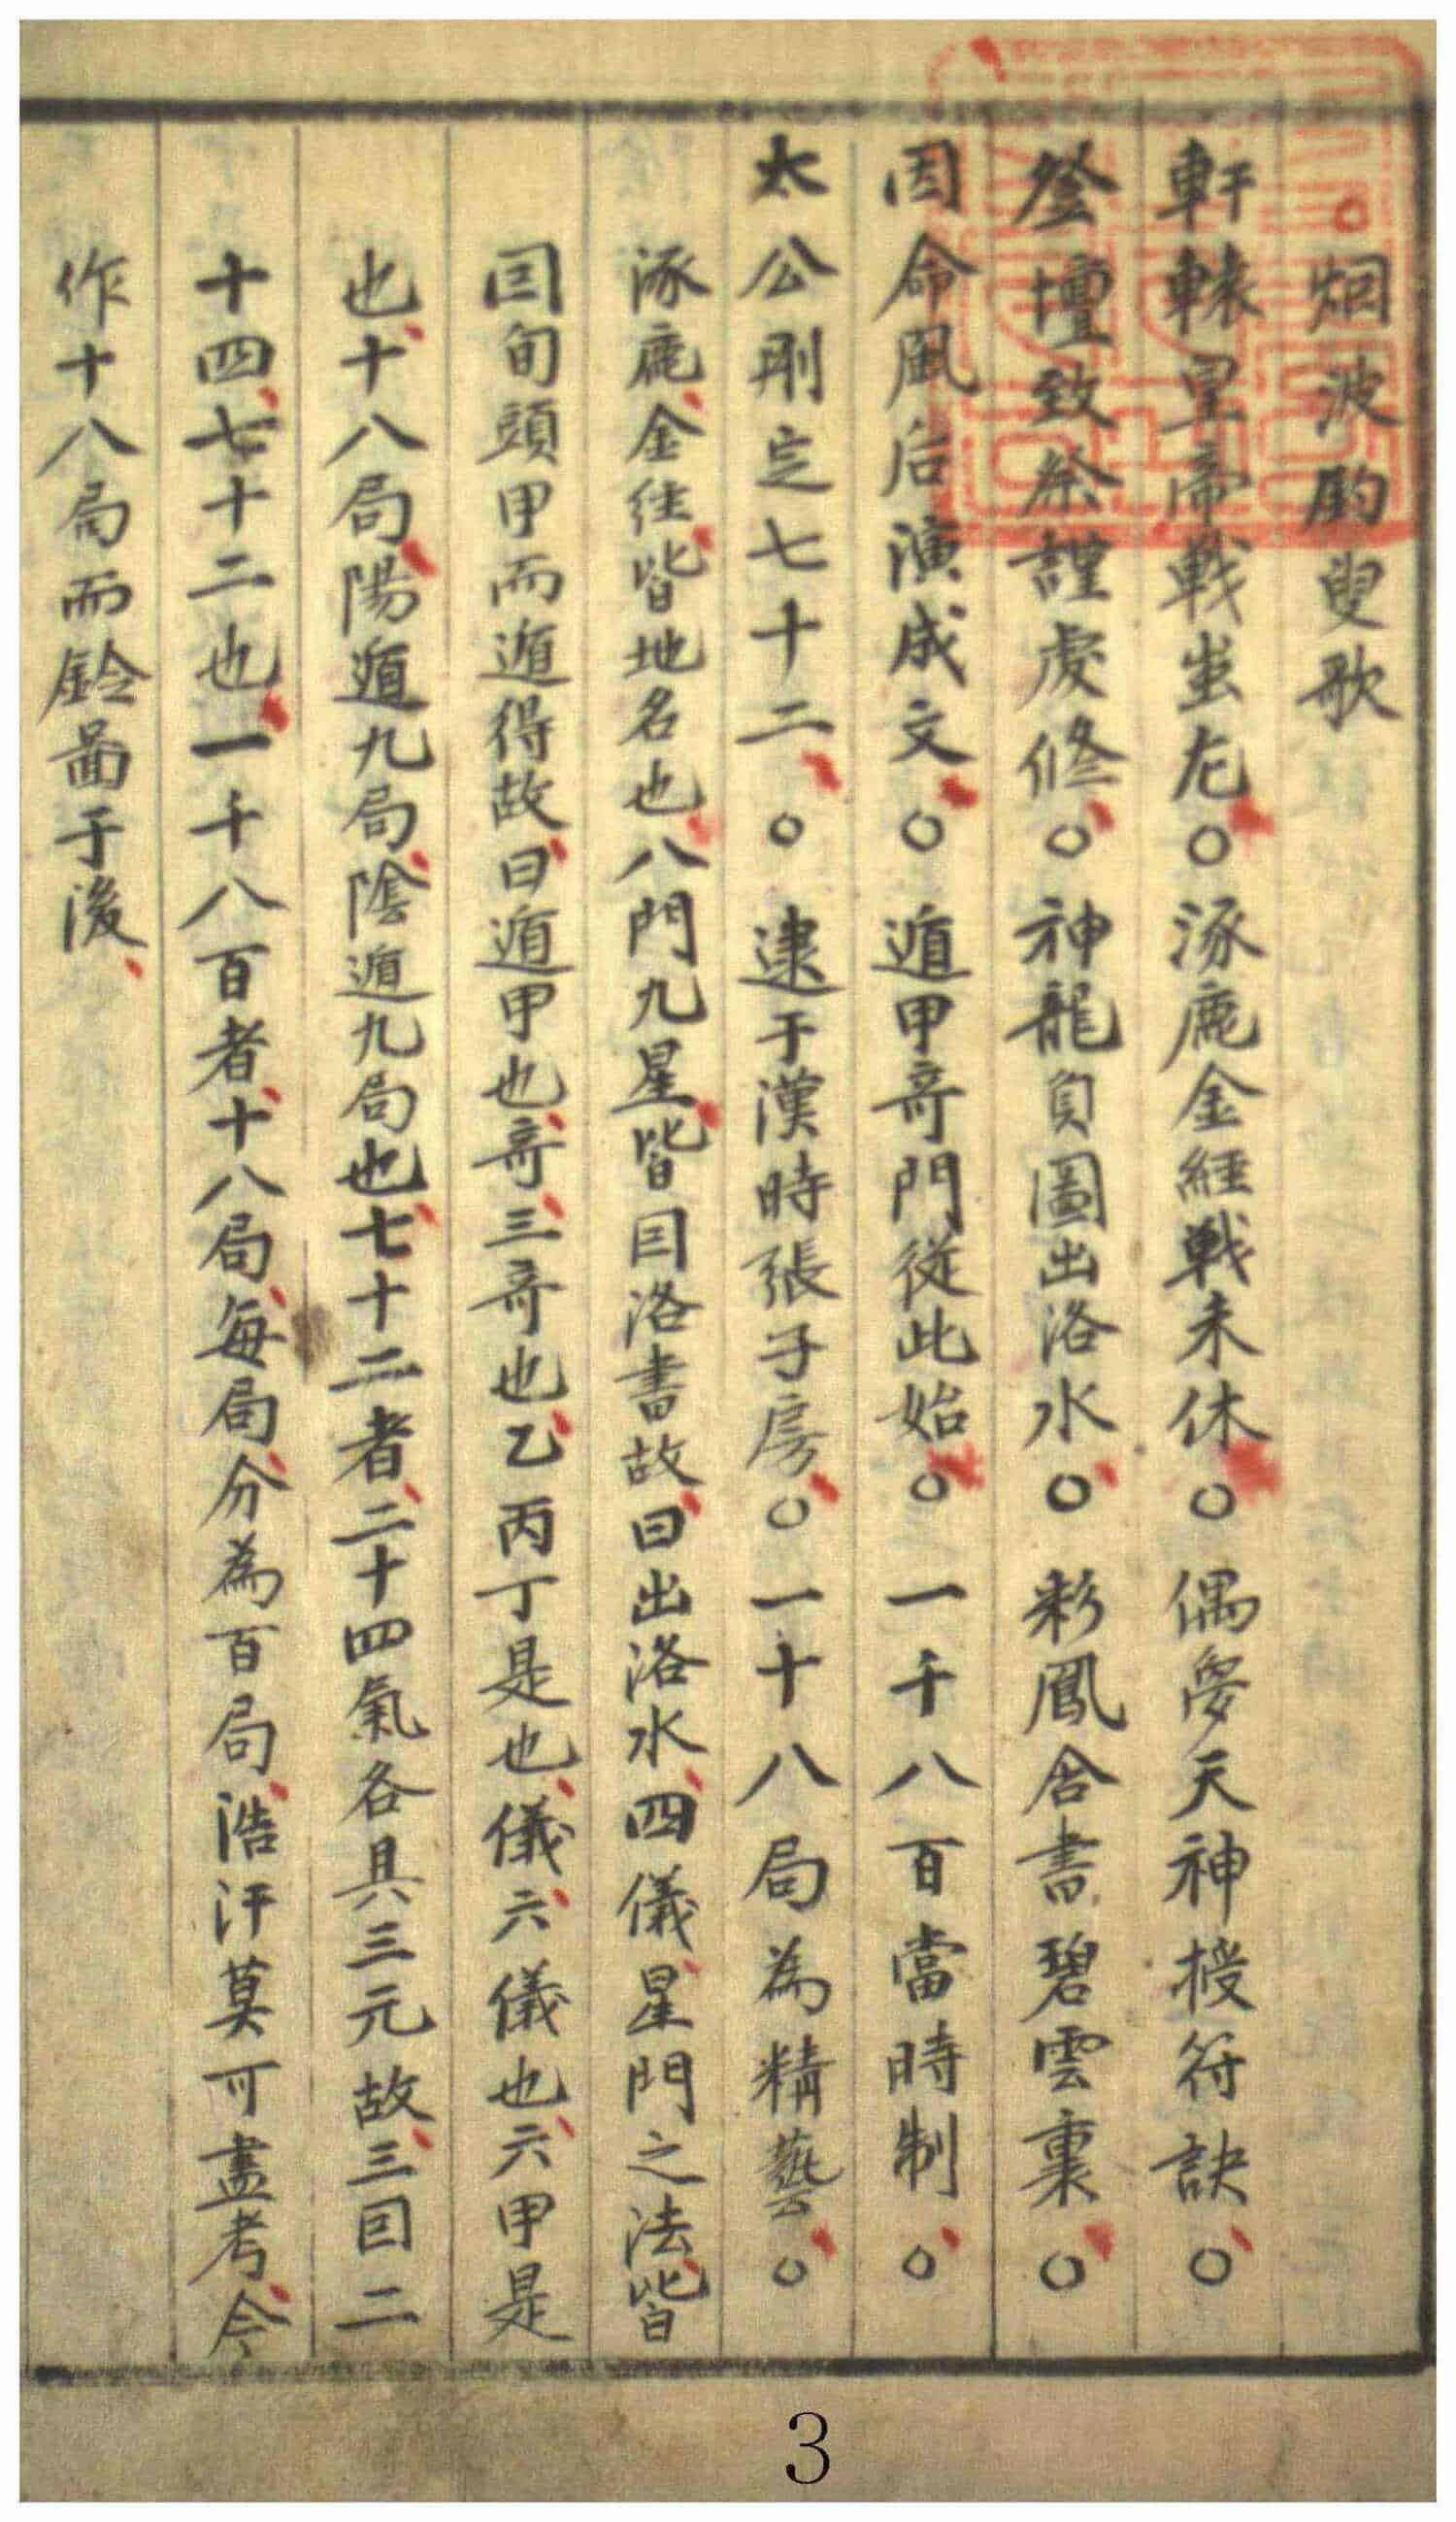 。烟波釣叟歌
軒轅皇帝戰蚩尤○涿鹿金經戰未休○偶夢天神授符訣○
登壇致祭謹虔修○神龍負圖出洛水○彩鳳含書碧雲裏○
因命風后演成文○遁甲竒門從此始○一千八百當時制○
太公刪定七十二○逮于漢時張子房○一十八局為精藝○
涿鹿金經皆地名也八門九星皆因洛書故曰出洛水四儀星門之法皆
囙旬頭甲而遁得故曰遁甲也竒三竒也乙丙丁是也儀六儀也六甲是
也十八局陽遁九局陰遁九局也七十二者二十四氣各具三元故三囙二
十四七十二也一千八百者十八局每局分為百局浩汗莫可盡考今
作十八局而鈴啚于後
3